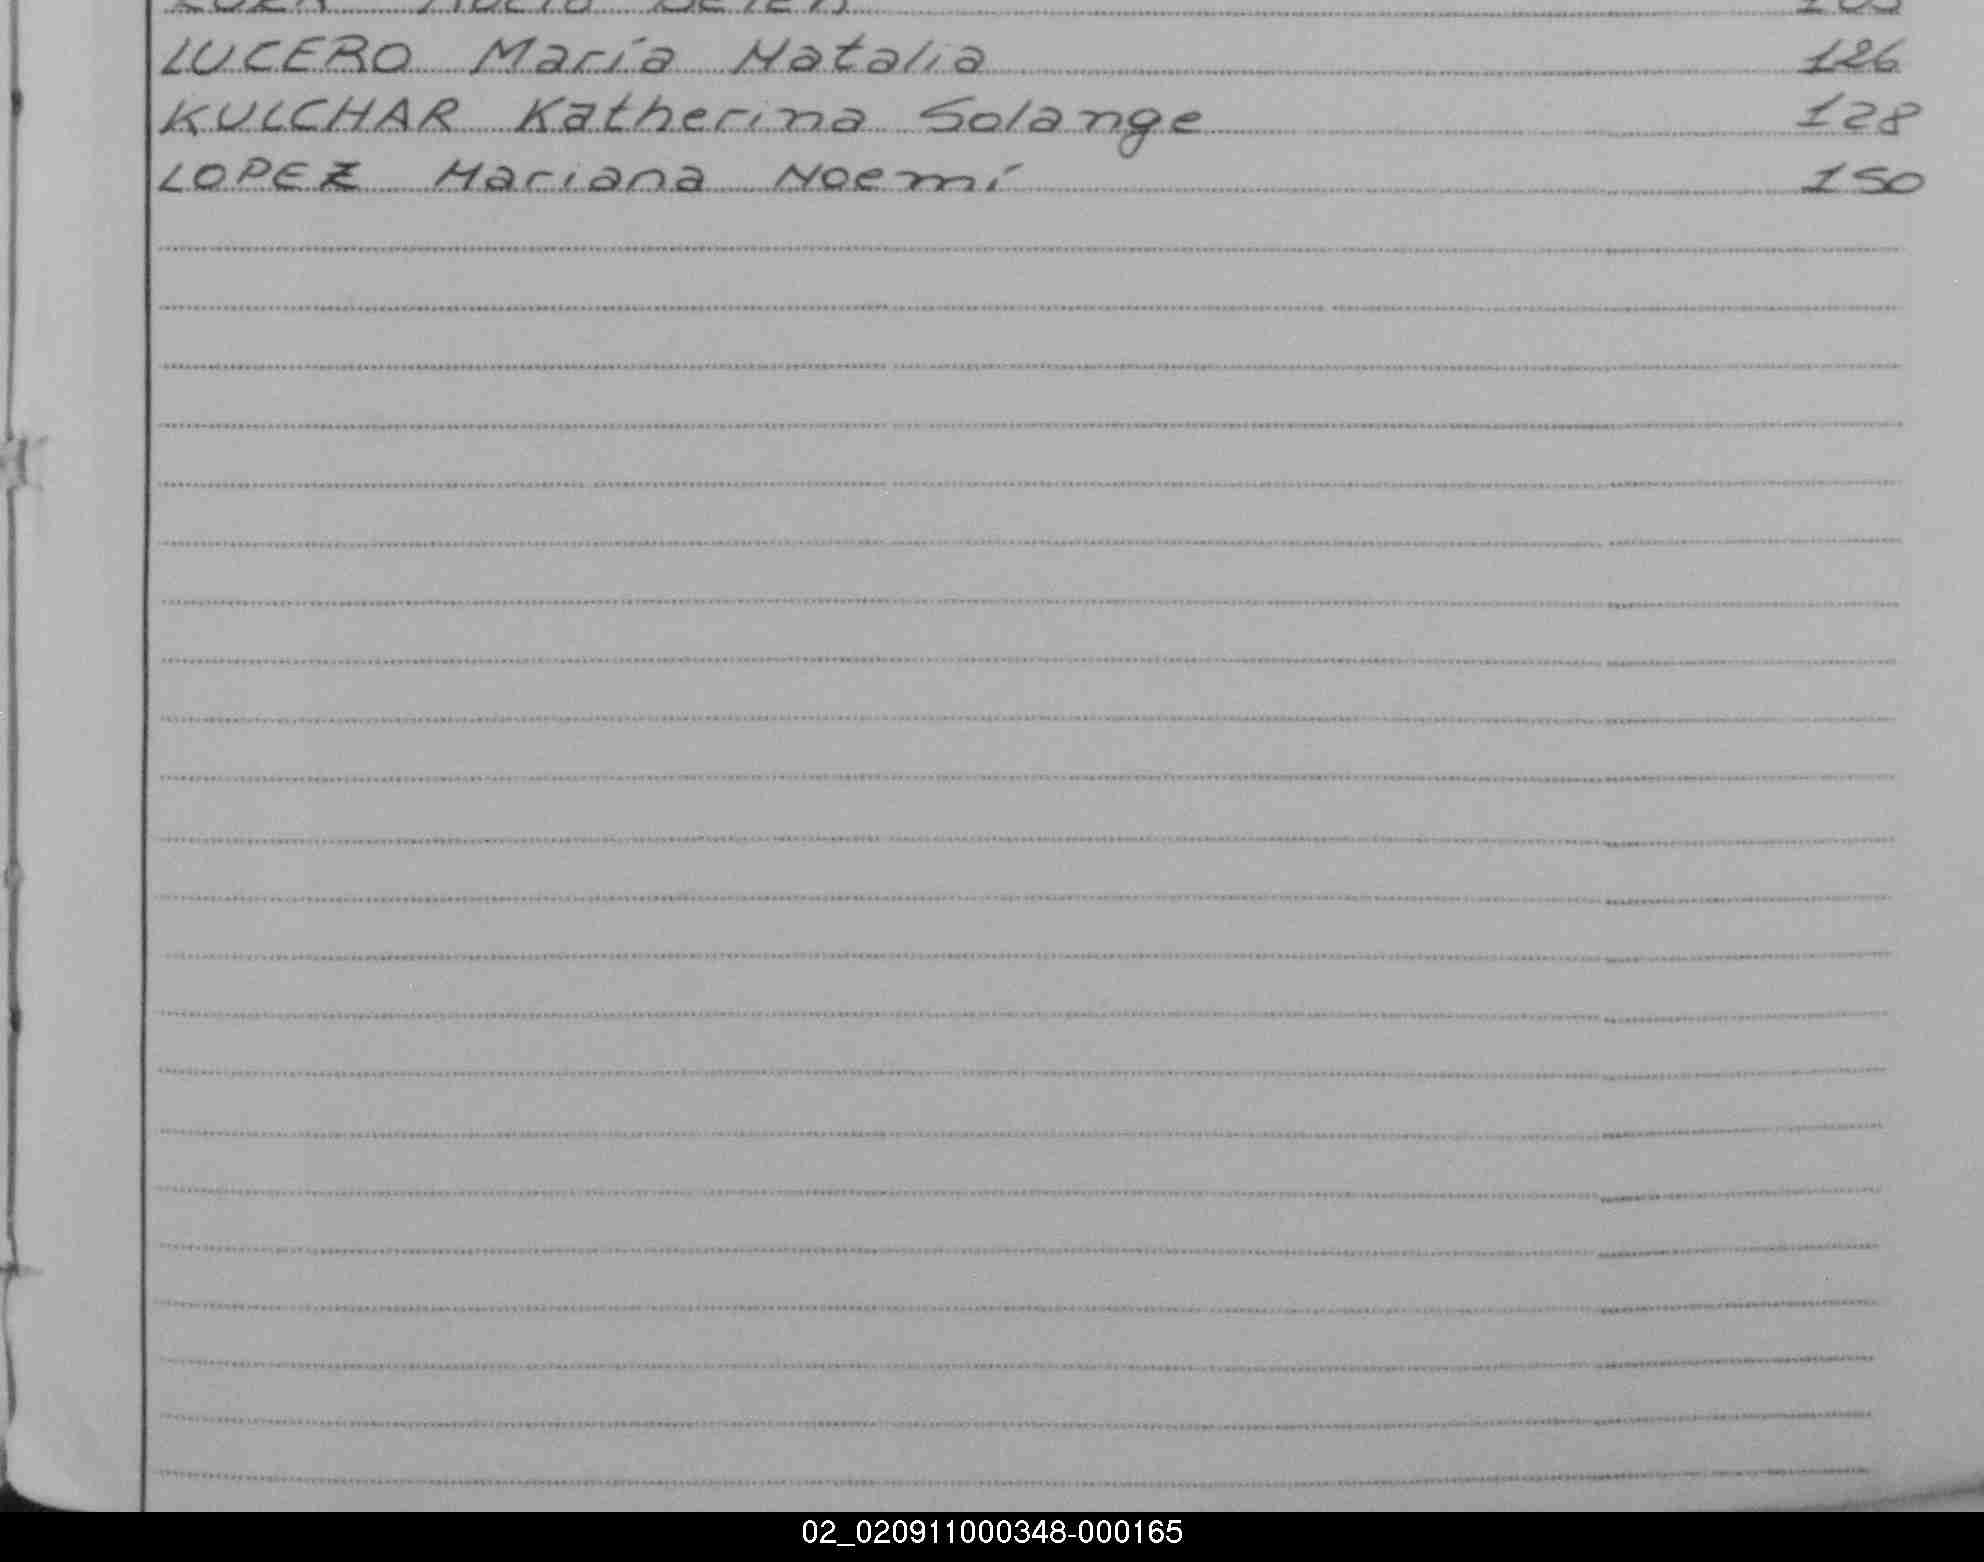 LUCERO María Natalia 126
KULCHAR Katherina Solange 128
LOPEZ Mariana Noemí 150
02_020911000348-000165